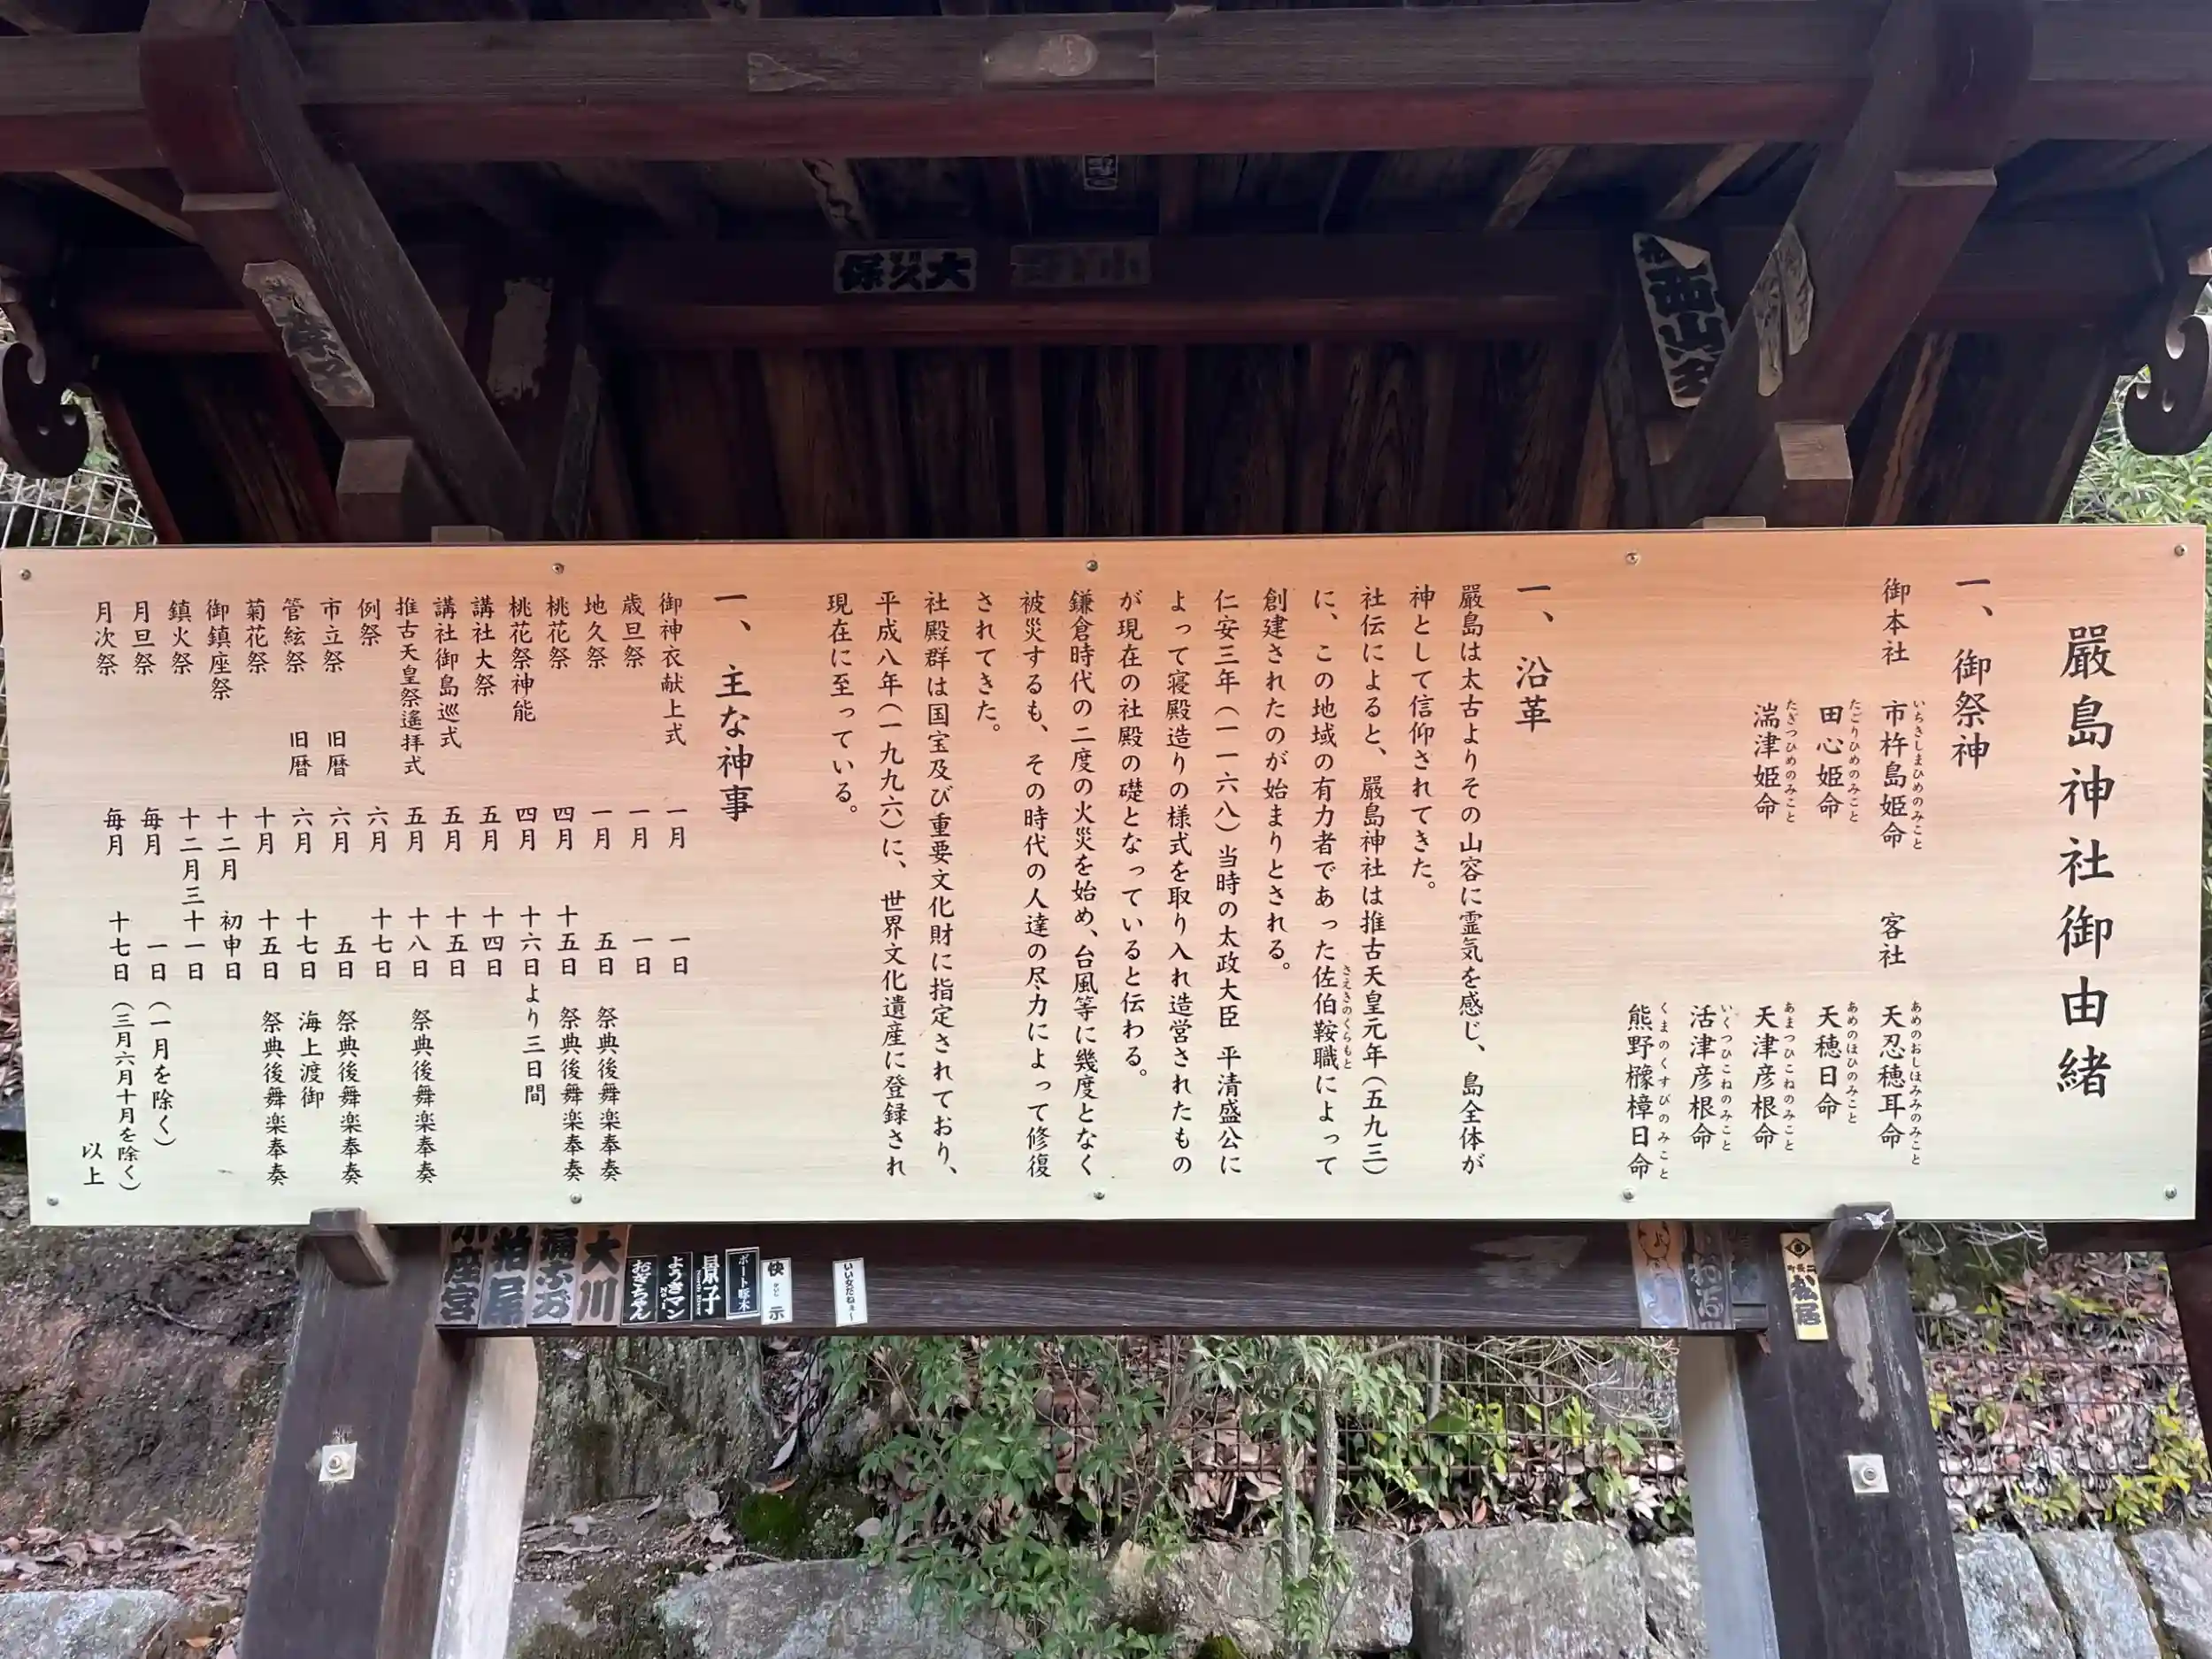 嚴島神社御由緒
一、御祭神
御本社 市杵島姫命 客社 天忍穂耳命
いちきしまひめのみこと あめのおしほみみのみこと
田心姫命 天穂日命
たごりひめのみこと あめのほひのみこと
湍津姫命 天津彦根命
たぎつひめのみこと あまつひこねのみこと
活津彦根命
いくつひこねのみこと
熊野櫲樟日命
くまのくすびのみこと
一、沿革
嚴島は太古よりその山容に霊気を感じ、島全体が
神として信仰されてきた。
社伝によると、嚴島神社は推古天皇元年(五九三)
に、この地域の有力者であった佐伯鞍職によって
さえきのくらもと
創建されたのが始まりとされる。
仁安三年(一一六八)当時の太政大臣 平清盛公に
よって寝殿造りの様式を取り入れ造営されたもの
が現在の社殿の礎となっていると伝わる。
鎌倉時代の二度の火災を始め、台風等に幾度となく
被災するも、その時代の人達の尽力によって修復
されてきた。
社殿群は国宝及び重要文化財に指定されており、
平成八年(一九九六)に、世界文化遺産に登録され
現在に至っている。
一、主な神事
御神衣献上式 一月 一日
歳旦祭 一月 一日
地久祭 一月 五日 祭典後舞楽奉奏
桃花祭 四月 十五日 祭典後舞楽奉奏
桃花祭神能 四月 十六日より三日間
講社大祭 五月 十四日
講社御島巡式 五月 十五日
推古天皇祭遙拝式 五月 十八日 祭典後舞楽奉奏
例祭 六月 十七日
市立祭 旧暦 六月 五日 祭典後舞楽奉奏
管絃祭 旧暦 六月 十七日 海上渡御
菊花祭 十月 十五日 祭典後舞楽奉奏
御鎮座祭 十二月 初申日
鎮火祭 十二月三十一日
月旦祭 毎月 一日(一月を除く)
月次祭 毎月 十七日(三月六月十月を除く)
以上
大久保
西山
大川
おぎちゃん
ようきマン
No.1
景子
ボート啄木
快
示
いい女だねぇー
柏尾
座宮
松居